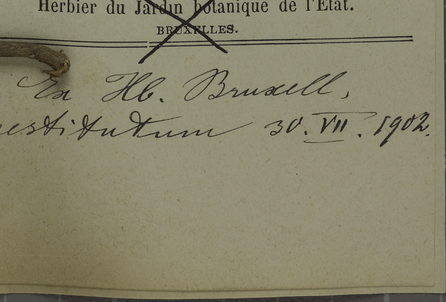 Herbier du Jardin botanique de l'État.
BRUXELLES.
Ex Hb. Bruxell,
estitutum 30. VII. 1902.